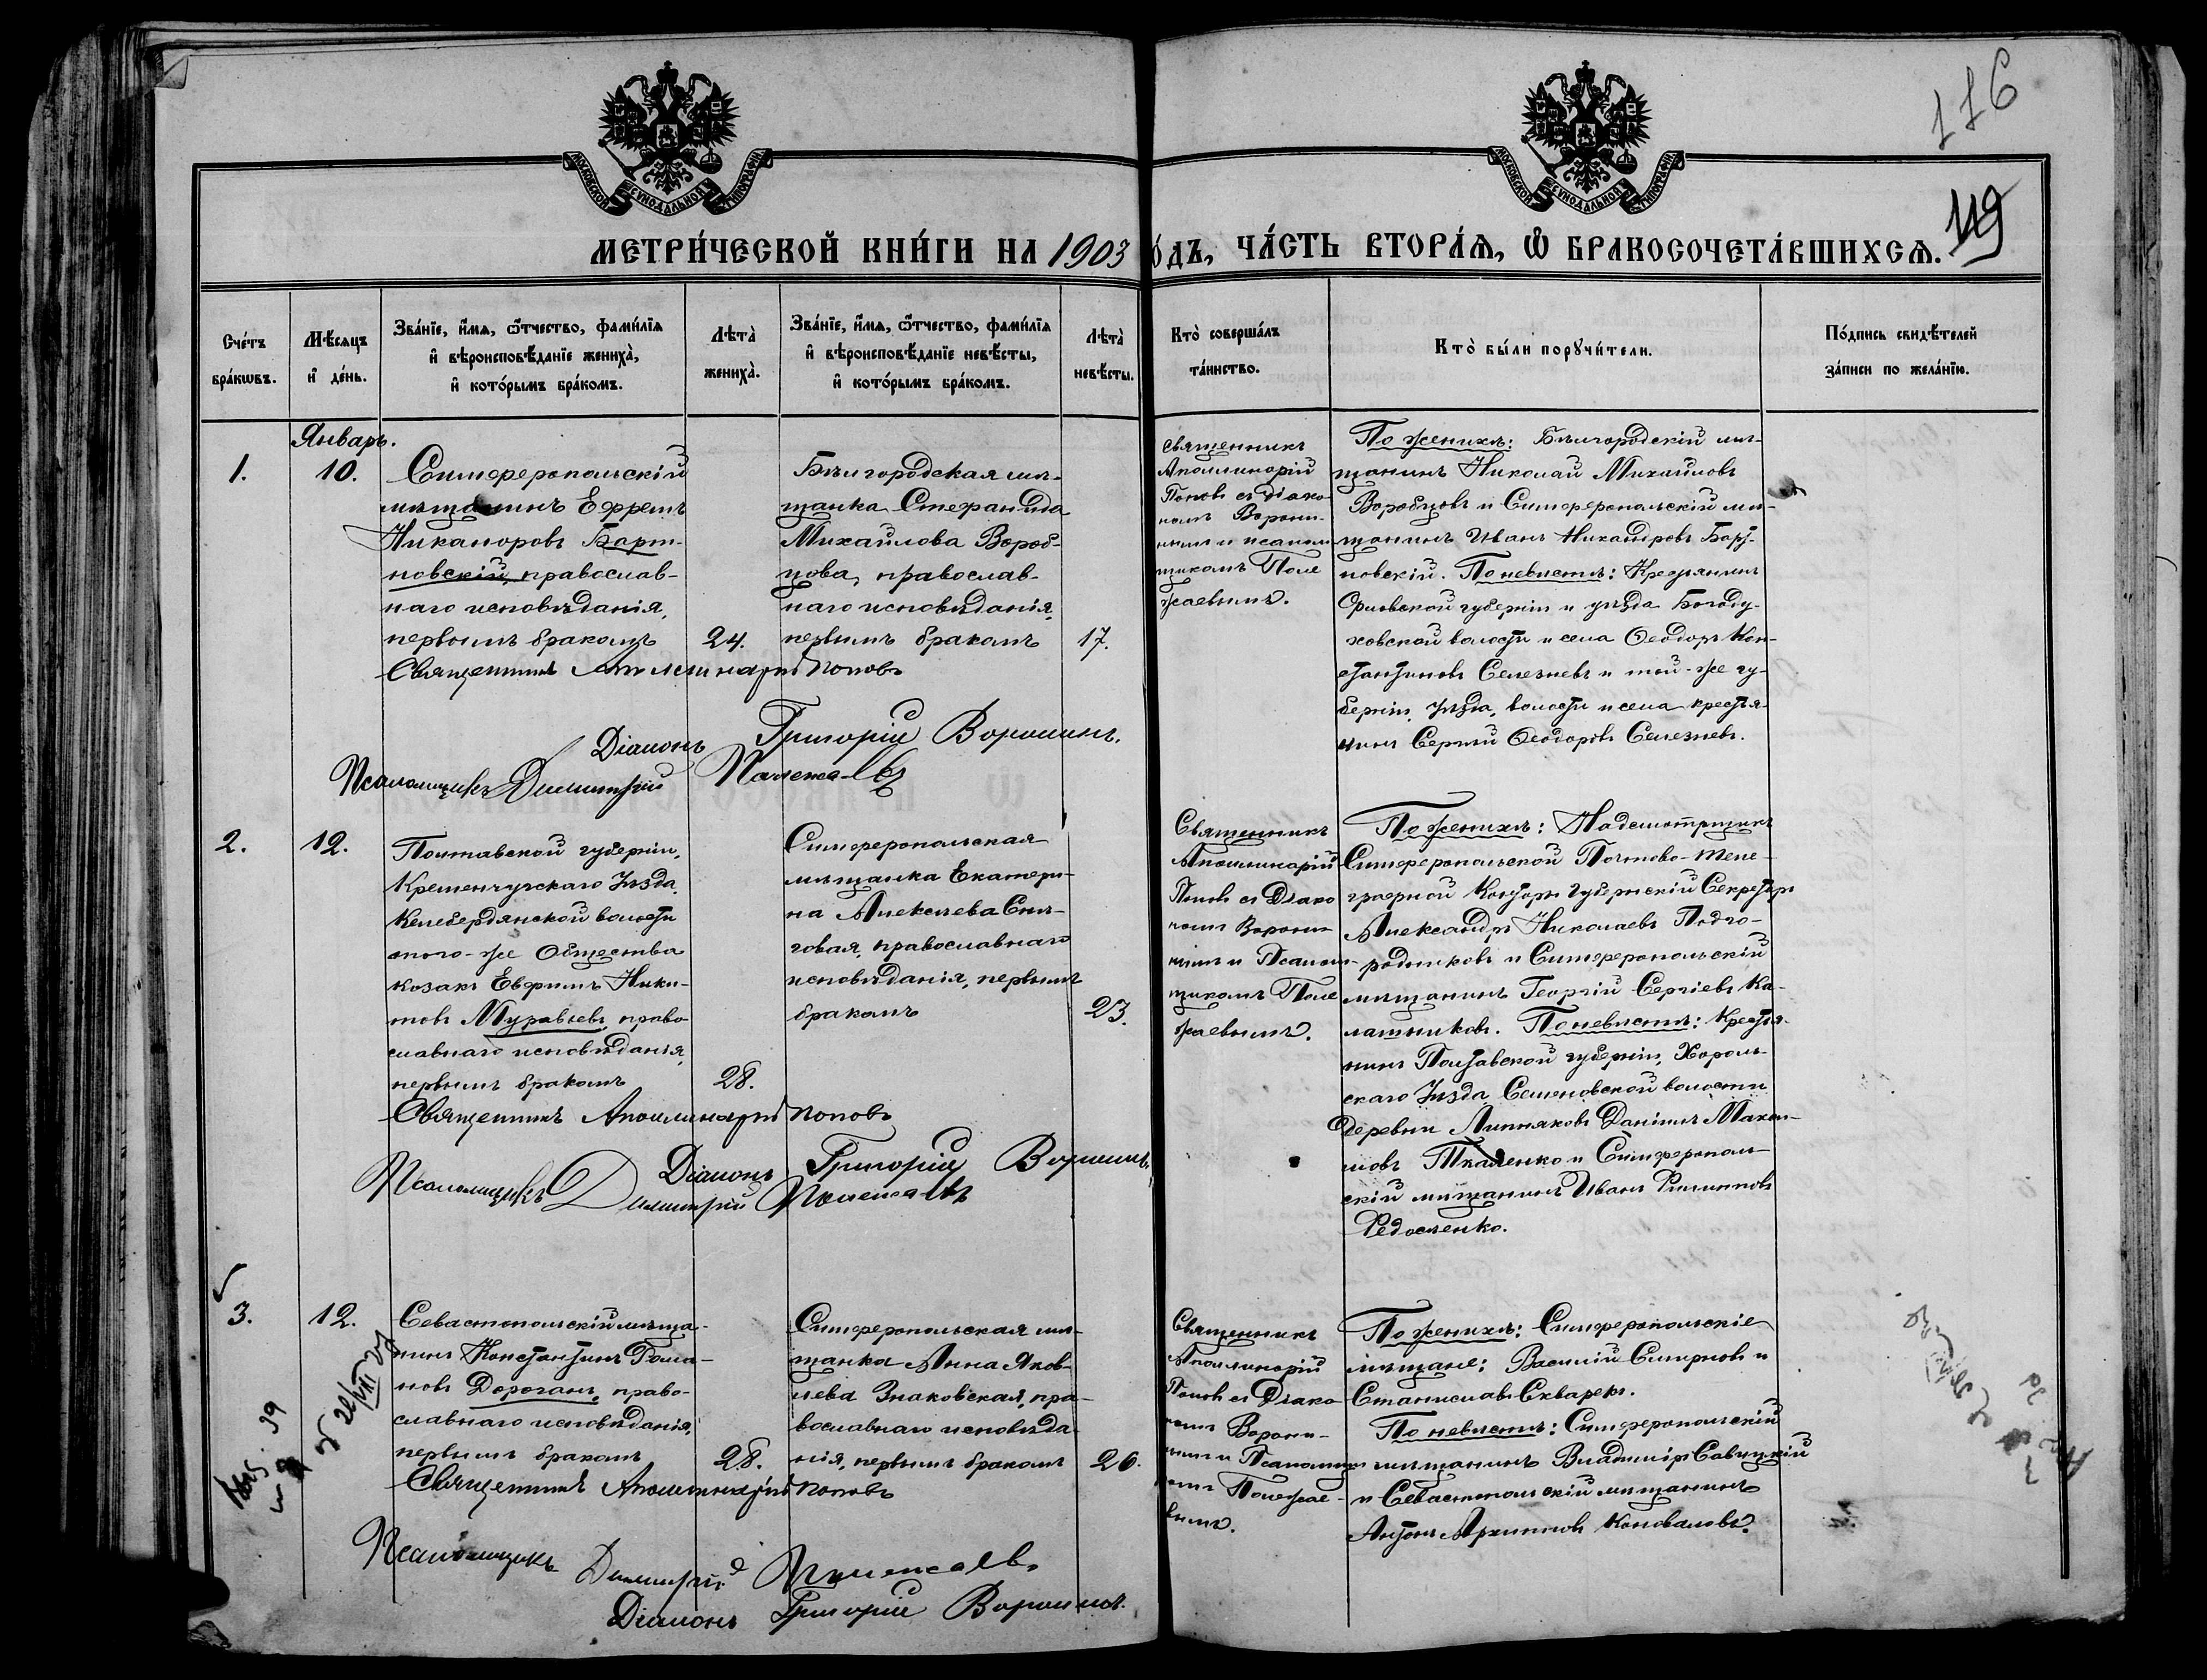 116
119
МОСКОВСКОЙ СѴНОДАЛЬНОЙ ТИПОГРАФІИ
МОСКОВСКОЙ СѴНОДАЛЬНОЙ ТИПОГРАФІИ
МЕТРИ́ЧЕСКОЙ КНИ́ГИ НА 1903 О́ДЪ, ЧА́СТЬ ВТОРА́Ѧ, Ѿ БРАКОСОЧЕТА́ВШИХСѦ.
Сче́тъ
бра́кѡвъ.
Мѣ́сѧцъ
и҆ де́нь.
Зва́нїе, и҆́мѧ, ѻ҆́тчество, фами́лїѧ
и҆ вѣроисповѣ́данїе жениха̀,
и҆ кото́рымъ бра́комъ.
Лѣта̀
жениха̀.
Зва́нїе, и҆́мѧ, ѻ҆́тчество, фами́лїѧ
и҆ вѣроисповѣ́данїе невѣ́сты,
и҆ кото́рымъ бра́комъ.
Лѣта̀
невѣ́сты.
Кто̀ соверша́лъ
та́инство.
Кто̀ бы́ли порꙋчи́тели.
По́дпись свидѣ́телей
за́писи по жела́нїю.
Январь.
1.
10.
Симферопольскій
мѣщанинъ Ефремъ
Никаноровъ Борт-
новскій, православ-
наго исповѣданія,
первымъ бракомъ
24.
Бѣлгородская мѣ-
щанка Стефанида
Михайлова Вороб-
цова, православ-
наго исповѣданія,
первымъ бракомъ
17.
Священникъ
Аполлинарій
Поповъ съ діако-
номъ Ворони-
нымъ и псалом-
щикомъ Поле
жаевымъ.
По женихѣ: Бѣлгородскій мѣ-
щанинъ Николай Михайловъ
Воробцовъ и Симферопольскій мѣ-
щанинъ Иванъ Никаноровъ Борт-
новскій. По невѣстѣ: Крестьянинъ
Орловской губерніи и уѣзда Богоду-
ховской волости и села Ѳеодоръ Кон-
стантиновъ Селезневъ и той-же гу-
берніи, уѣзда, волости и села крестья-
нинъ Сергѣй Ѳеодоровъ Селезневъ.
Священникъ Аполлинарій Поповъ
Діаконъ Григорій Воронинъ.
Псаломщикъ Димитрій Полежаевъ
2.
12.
Полтавской губерніи,
Кременчугскаго Уѣзда,
Келебердянской волости
того-же Общества
козакъ Евфимъ Ники-
товъ Муравьевъ, право
славнаго исповѣданія,
первымъ бракомъ
28.
Симферопольская
мѣщанка Екатери-
на Алексѣева Снѣ-
говая, православнаго
исповѣданія, первымъ
бракомъ
23.
Священникъ
Аполлинарій
Поповъ съ Діако
номъ Ворони-
нымъ и Псалом-
щикомъ Поле
жаевымъ.
По женихѣ: Надсмотрщикъ
Симферопольской Почтово-теле-
графной Конторы Губернскій Секретарь
Александръ Николаевъ Подго-
родниковъ и Симферопольскій
мѣщанинъ Георгій Сергіевъ Ка-
лашниковъ. По невѣстѣ: Крестья-
нинъ Полтавской губерніи, Хороль-
скаго Уѣзда, Семеновской волости
деревни Липняковъ Даніилъ Макси-
мовъ Ткаченко и Симферополь-
скій мѣщанинъ Иванъ Филипповъ
Федосѣенко.
Священникъ Аполлинарій Поповъ
Діаконъ Григорій Воронинъ
Псаломщикъ Димитрій Полежаевъ
3.
12.
Севастопольскій мѣща-
нинъ Константинъ Гома-
новъ Дороганъ, право-
славнаго исповѣданія,
первымъ бракомъ
28.
Симферопольская мѣ-
щанка Анна Яков-
лева Знаковская, пра-
вославнаго исповѣда-
нія, первымъ бракомъ
26.
Священникъ
Аполлинарій
Поповъ съ Діако
номъ Ворони-
нымъ и Псаломщи
комъ Полежае-
вымъ.
По женихѣ: Симферопольскіе
мѣщане: Василій Смирновъ и
Станиславъ Скварекъ.
По невѣстѣ: Симферопольскій
мѣщанинъ Владиміръ Савицкій
и Севастопольскій мѣщанинъ
Антонъ Архиповъ Коноваловъ.
Священникъ Аполлинарій Поповъ
Псаломщикъ Димитрій Полежаевъ
Діаконъ Григорій Воронинъ.